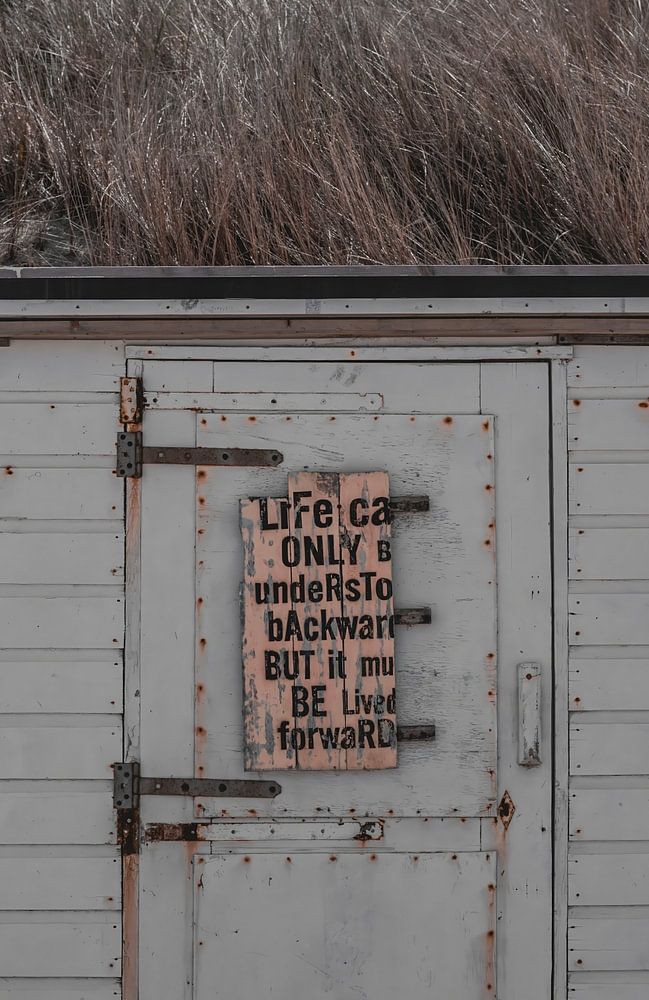 LiFe ca
ONLY B
undeRsTo
bAckwar
BUT it mu
BE Lived
forwaRD